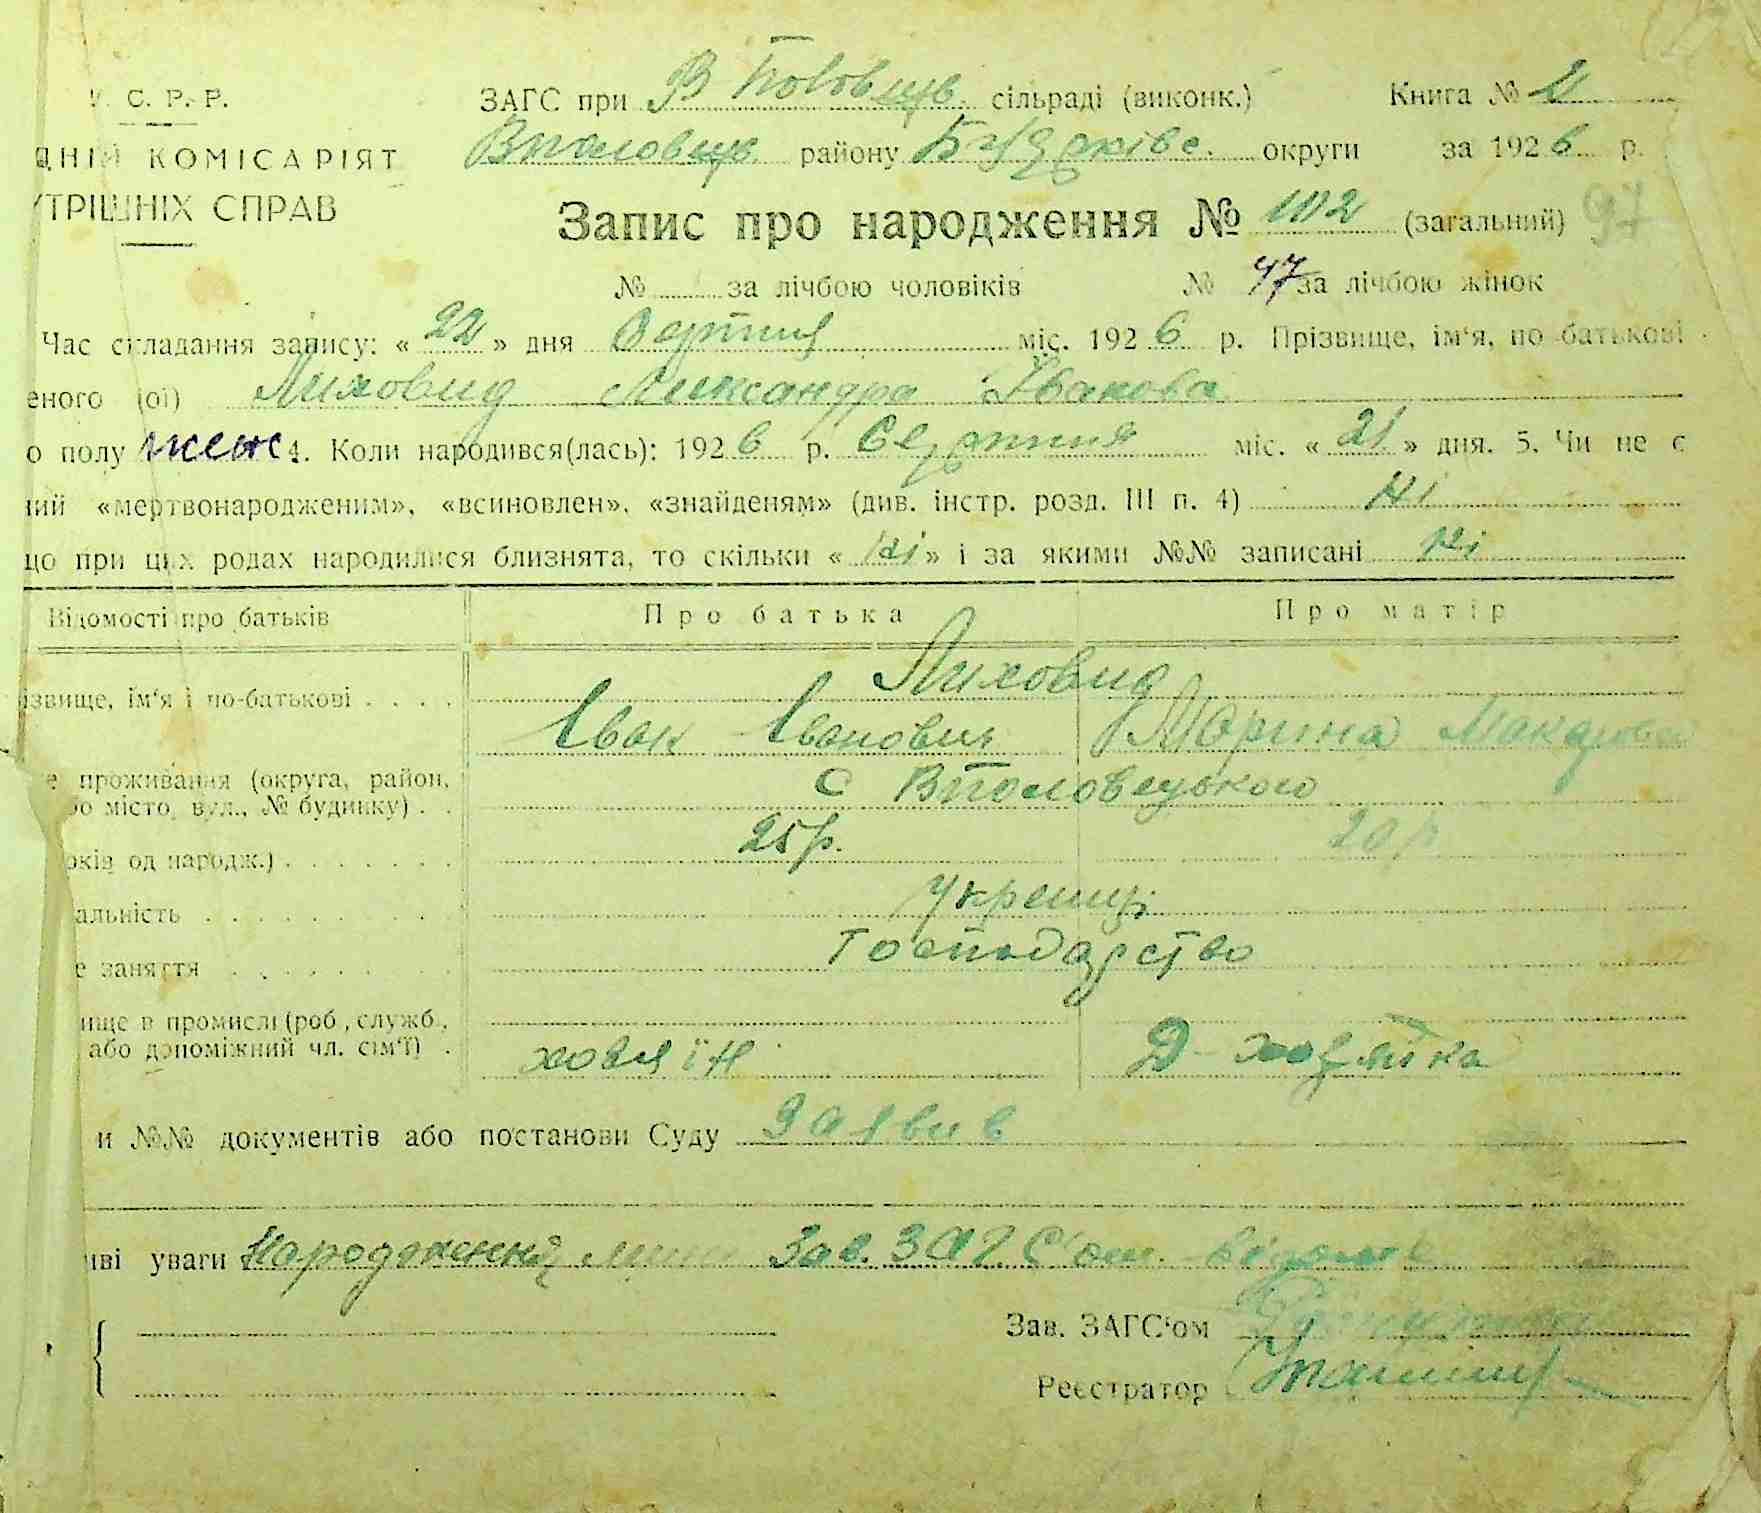 У. С. Р. Р.
ЗАГС при В Половец. сільраді (виконк.) Книга №
ДНІЙ КОМІСАРІЯТ Вполовец. району Б Церківс. округи за 1926 р.
УТРІШНІХ СПРАВ
Запис про народження № 102 (загальний) 97
№ за лічбою чоловіків № 47 за лічбою жінок
Час складання запису: « 22 » дня Серпня міс. 1926 р. Прізвище, ім'я, по-батькові
еного (ої) Лиховид Александра Іванова
о полу жен 4. Коли народився(лась): 1926 р. Серпня міс. « 21 » дня. 5. Чи не є
ий «мертвонародженим», «всиновлен», «знайденям» (див. інстр. розд. III п. 4) Ні
що при цих родах народилися близнята, то скільки « Ні » і за якими №№ записані Ні
Відомості про батьків Про батька Про матір
Лиховид
ізвище, ім'я і по-батькові . . . .
Іван Іванович Марина Макарова
е проживання (округа, район,
с Вполовецького
бо місто, вул., № будинку) . .
25 р. 20 р
оків од народж.) . . . . . . .
Україці
альність . . . . . . . .
Господарство
е заняття . . . . . .
ище в промислі (роб., служб.,
або допоміжний чл. сім'ї) . хозяїн Д-хозяйка
и №№ документів або постанови Суду Заявив
иві уваги Народження Зав. ЗАГС'ом. відоме
Зав. ЗАГС'ом
Реєстратор